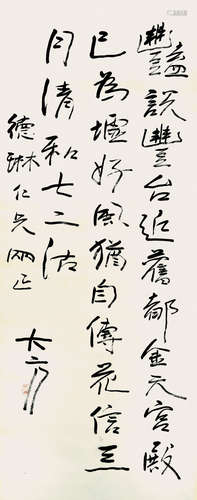 艷說豐台近舊都金元宮殿
已為墟好風猶自傳花信三
月清和七二沽
德琳仁兄兩正
大方